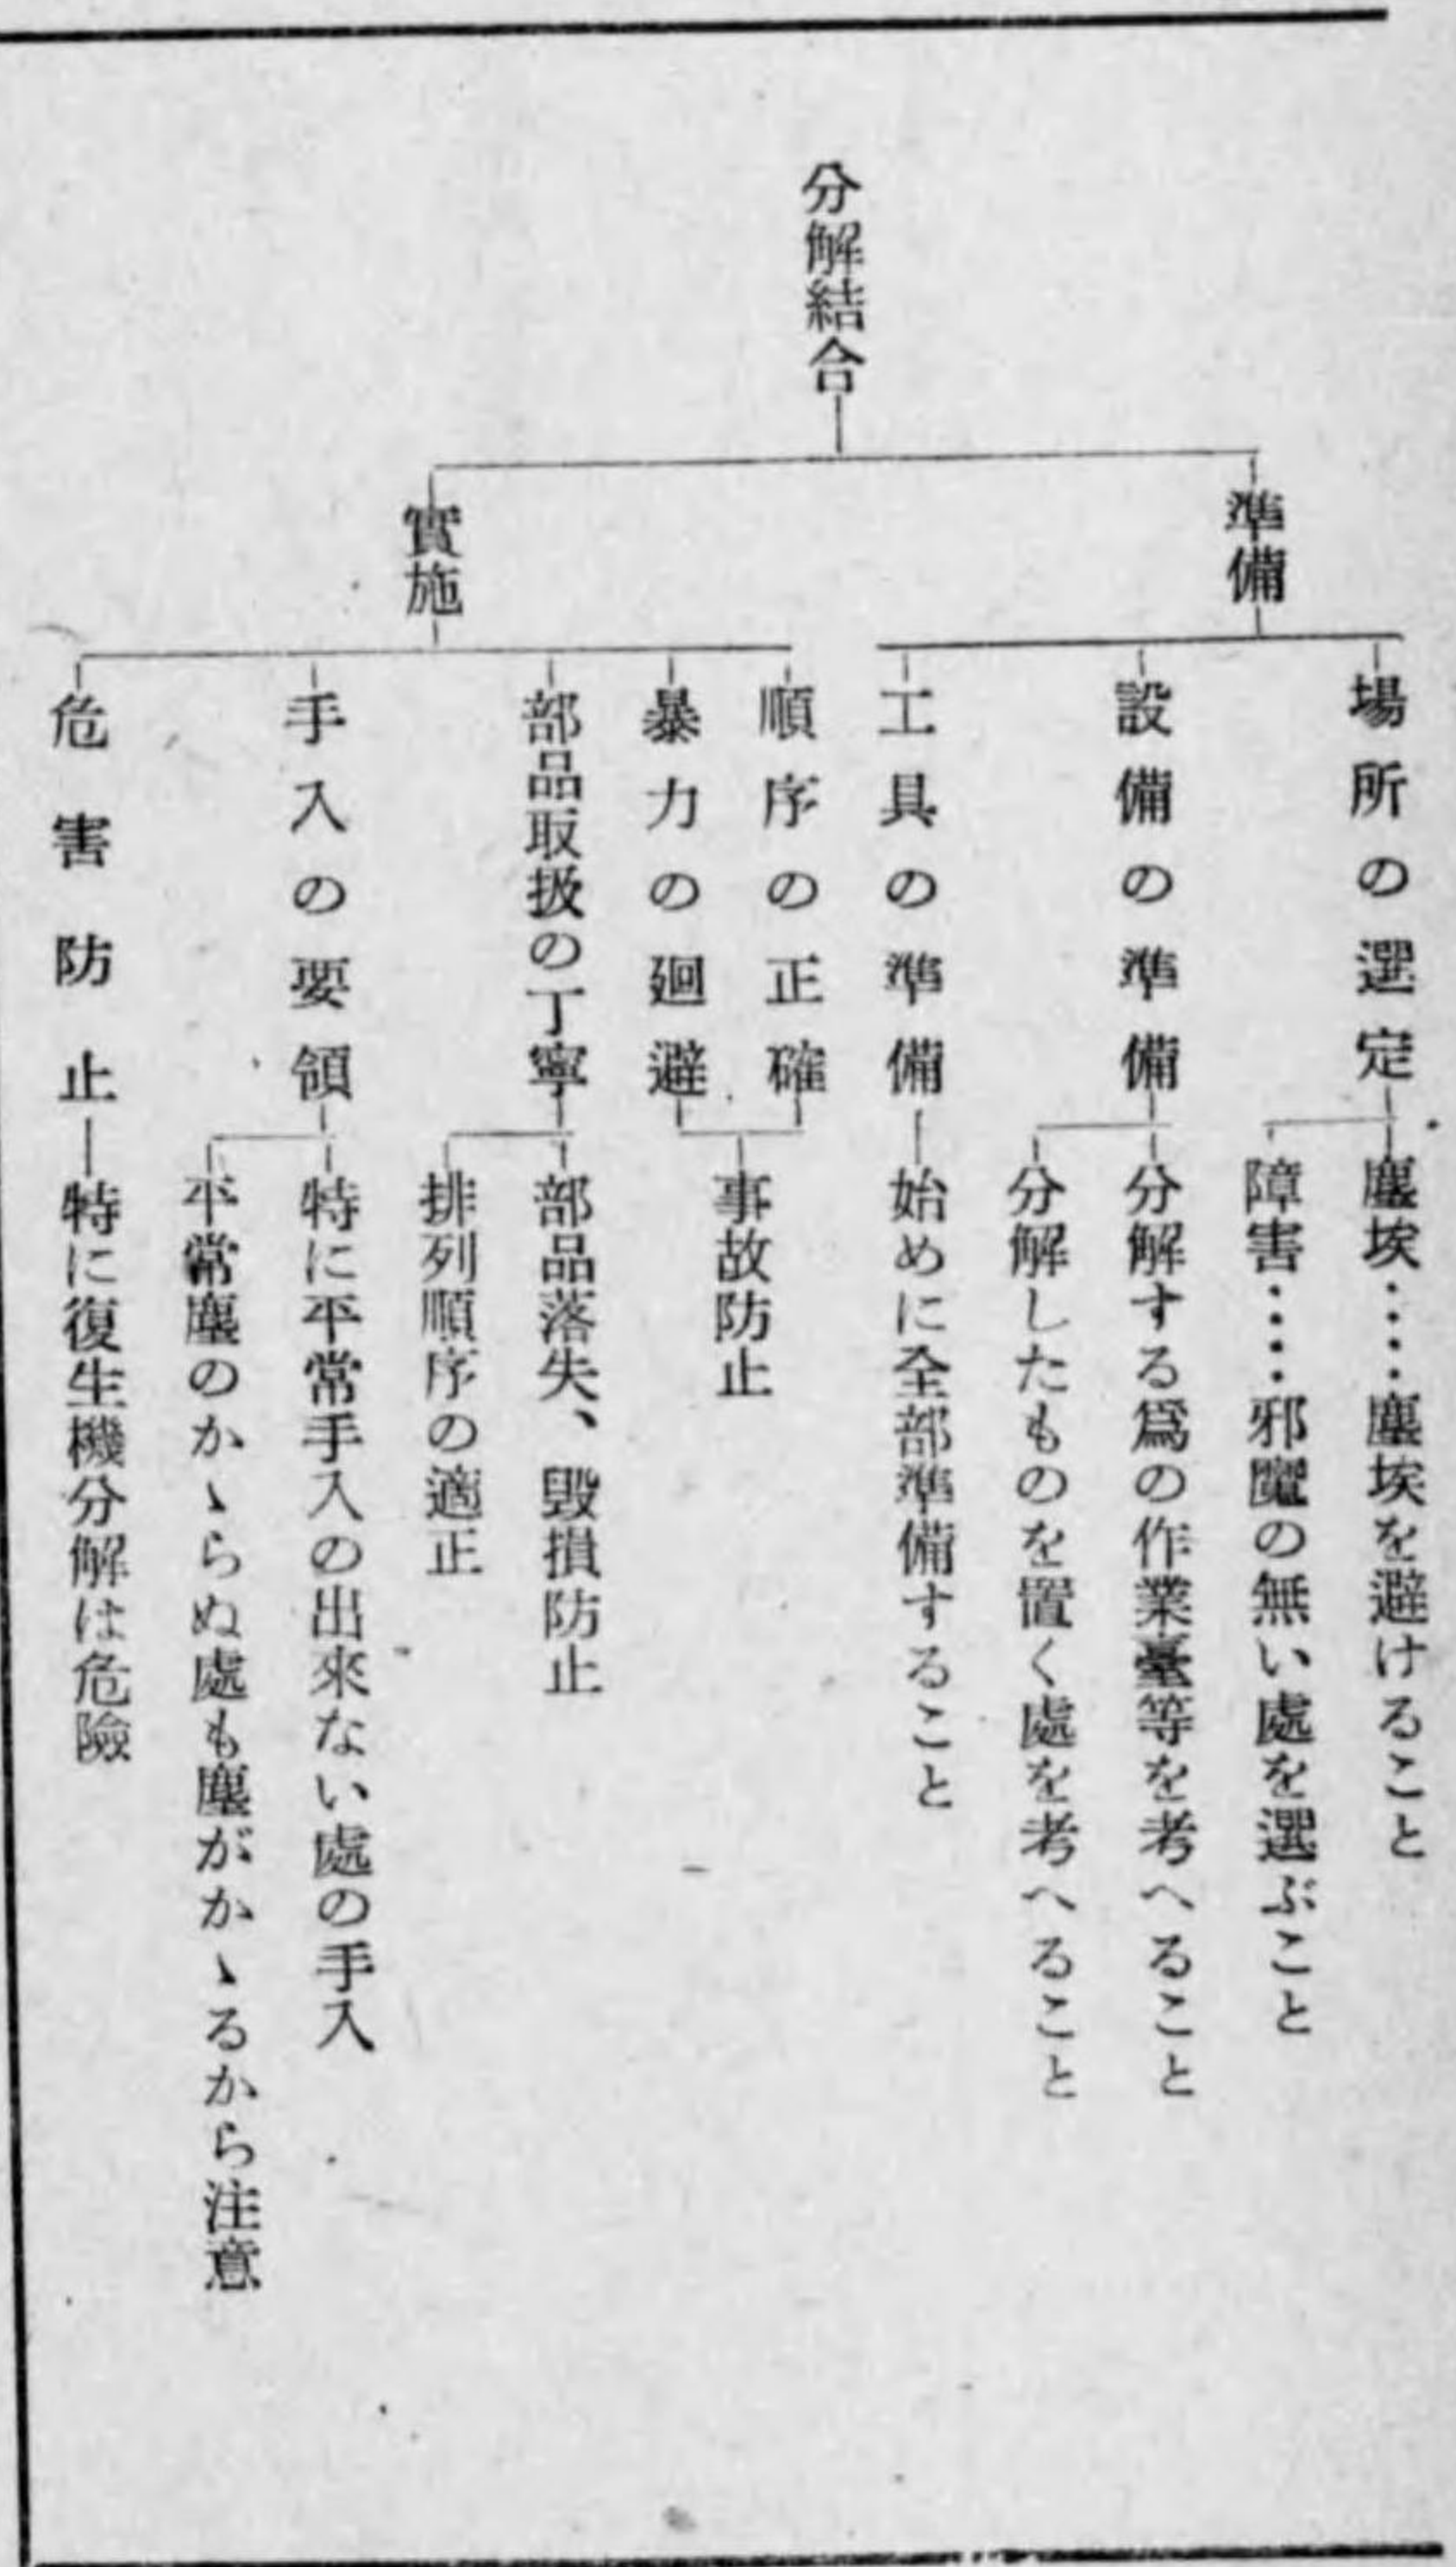 分解結合
準備
場所の選定
塵埃‥‥塵埃を避けること
障害‥‥邪魔の無い處を選ぶこと
設備の準備
分解する爲の作業臺等を考へること
分解したものを置く處を考へること
工具の準備
始めに全部準備すること
實施
順序の正確
暴力の廻避
事故防止
部品取扱の丁寧
部品落失、毀損防止
排列順序の適正
手入の要領
特に平常手入の出來ない處の手入
平常塵のかゝらぬ處も塵がかゝるから注意
危害防止
特に復生機分解は危險